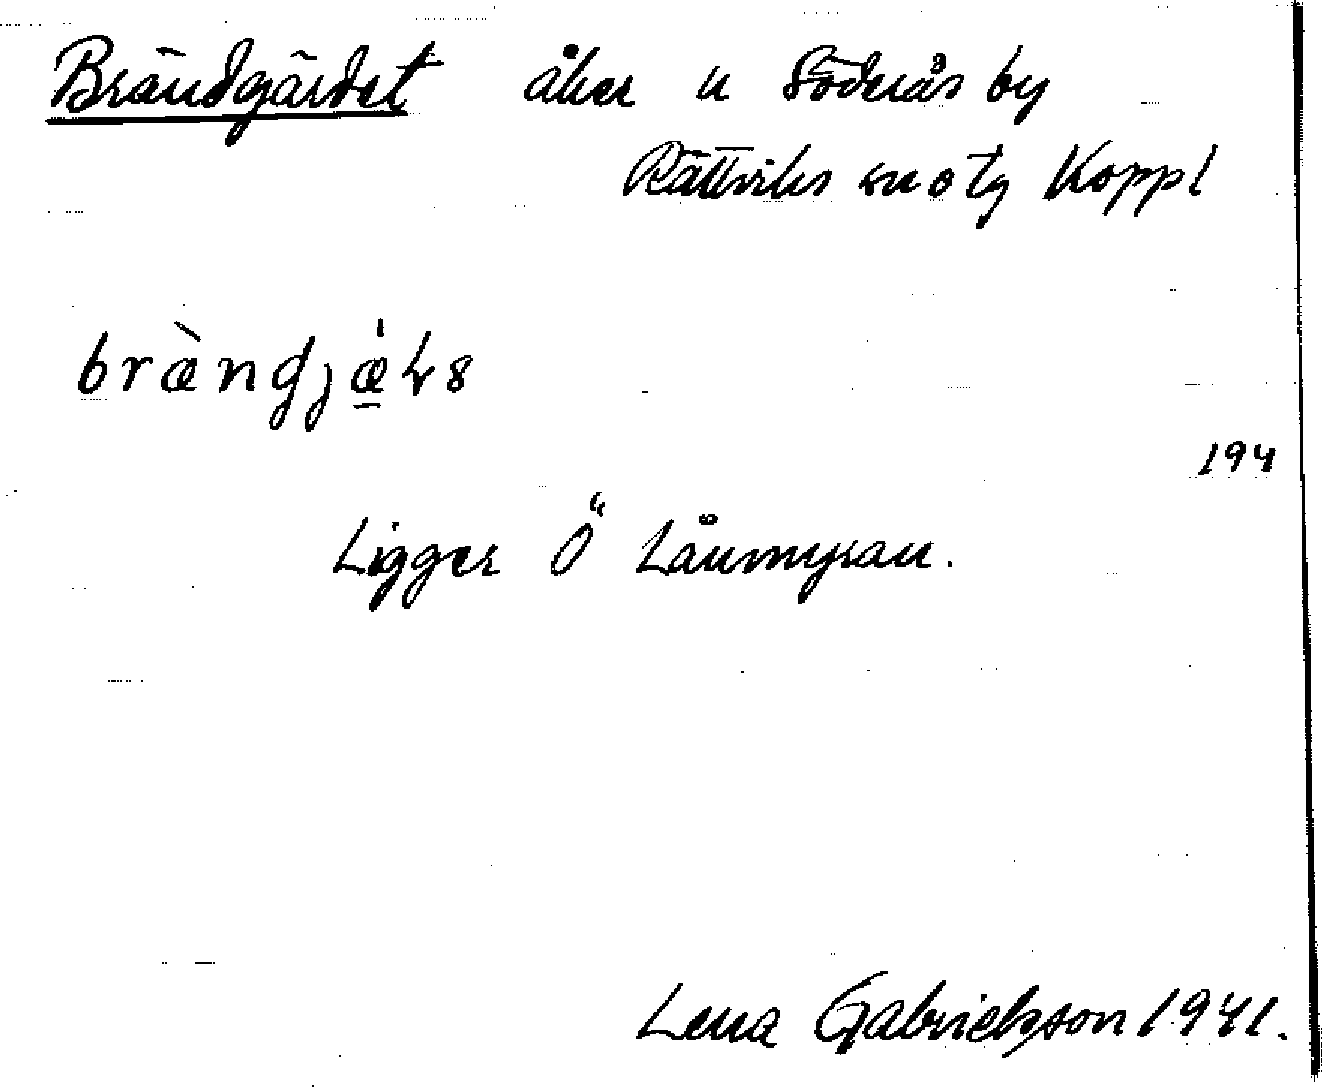 Brändgärdet åker u Söderås by
Rättviks sn o tg Koppl
bræ̀ngjæ̲̍
194
Ligger Ö" Lånmyran.
Lena Gabrielsson 1941.